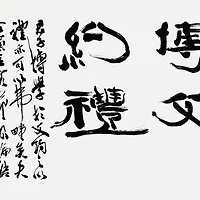 博文
約禮
君子博學於文約之以
禮亦可以弗畔矣夫
論語